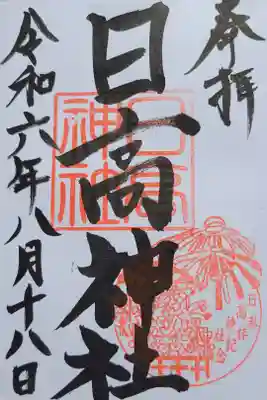 奉拝
日高神社
令和六年八月十八日
日高
神社